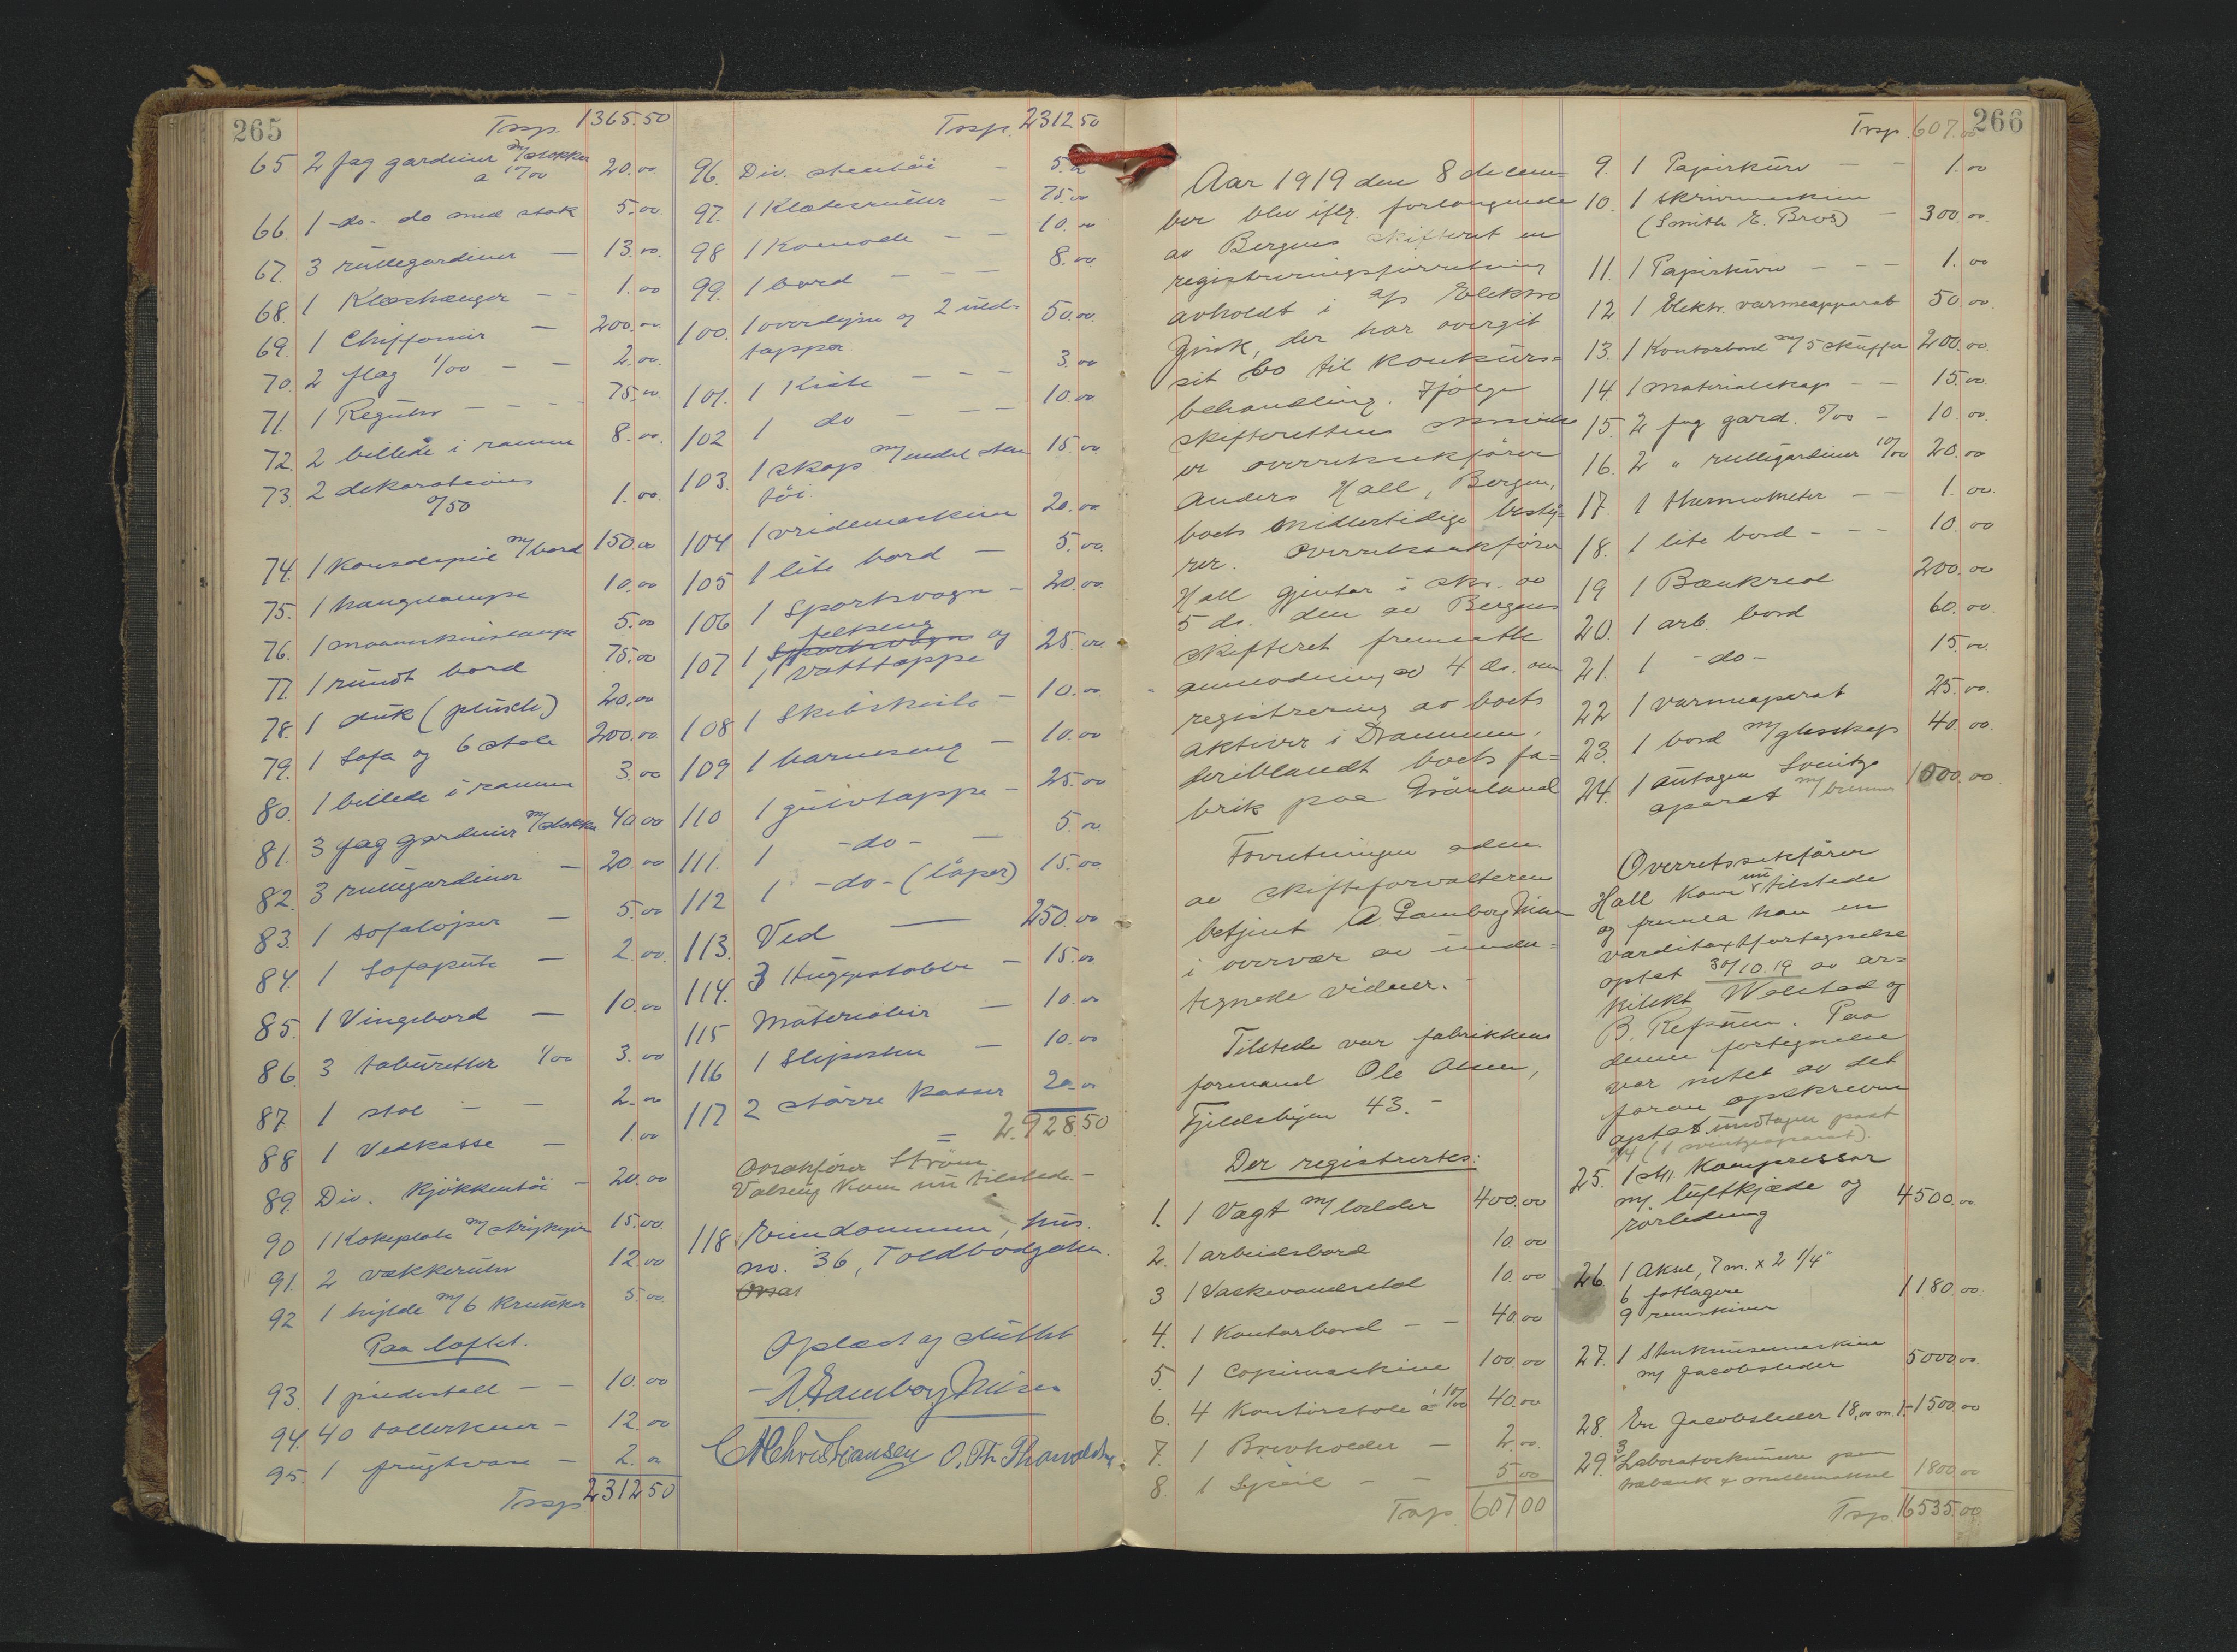 265
Trsp. 1365.50
65 2 fag gardiner m/stokker
a 10/00 20.00
66. 1 -do- do med stok 5.00
67. 3 rullegardiner — 13.00
68. 1 Klæshænger - - 1.00
69. 1 Chiffonier — 200.00
70. 2 flag 1/00 — — 2.00
71. 1 Regulur — — — 75.00
72. 2 billede i ramme 8.00
73. 2 dekorations
0/50 1.00
74. 1 Konsolspeil m/bord 150.00
75. 1 hængelampe 10.00
76. 1 maaneskinslampe 5.00
77. 1 rundt bord 75.00
78. 1 duk (plusch) 20.00
79. 1 Sofa og 6 stole 200.00
80. 1 billede i ramme 3.00
81. 3 fag gardiner m/stokke 40.00
82. 3 rullegardiner — 20.00
83. 1 sofaløper — 5.00
84. 1 Sofapute — 2.00
85. 1 Vingebord — 10.00
86. 3 taburetter 1/00 3.00
87. 1 stol — — 2.00
88 1 Vedkasse — 1.00
89. Div. Kjøkkentøi — 20.00
90 1 Kokeplate m/strykejern 15.00
91. 2 vækkerure 12.00
92 1 hylde m/6 krukker 5.00
Paa loftet.
93. 1 piedestall — — 10.00
94. 40 tallerkener — 12.00
95. 1 frugtvase — 2.00
Trsp. 2312.50
Trsp. 2312.50
96. Div. stentøi — 5.00
97. 1 Klæderuller — 75.00
98 1 Komode — — 10.00
99. 1 bord — — — 8.00
100. 1 overdyne og 2 uld-
tæpper. 50.00
101. 1 Kiste — — — 3.00
102 1 do — — — 10.00
103. 1 skap m/endel sten
tøi. 15.00
104 1 vridemaskine 20.00
105 1 lite bord — 5.00
106 1 Sportsvogn — 20.00
feltseng
107 1 Sportsvogn og
1 vatttæppe 25.00
108 1 Skibskiste — 10.00
109 1 barneseng — 10.00
110 1 gulvtæppe — 25.00
111. 1 -do- — 5.00
112 1 -do- (løper) 15.00
113. Ved — 250.00
114. 3 Huggestabbe — 15.00
115 Materialier — 10.00
116 1 Slipesten — 10.00
117 2 större Kasser 20.00
= 2.928.50
Orsakfører Strøm
Valseng kom nu tilstede.—
118 Eiendommen, hus.
no. 36, Toldbodgaten.
Orsa
Oplæst og sluttet
A Gamborg Nilsen
C M Christiansen O. Th. Thorvaldsen
266
Aar 1919 den 8 decem-
ber blev iflg. forlangende
av Bergens skifteret en
registreringsforretning
avholdt i A/S Elektro
Zink, der har overgit
sit bo til konkurs-
behandling. Ifølge
skifterettens
er overretssakfører
Anders Hall, Bergen,
boets midlertidige besty-
rer. Overretssakfører
Hall gjentar i skr. av
5 ds. den av Bergens
skifteret fremsatte
anmodning av 4 ds. om
registrering av boets
aktiver i Drammen,
deriblandt boets fa-
brik paa Grønland
Forretningen adm.
av skifteforvalteren
betjent A. Gamborg Nilsen
i overvær av under-
tegnede vidner.—
Tilstede var fabrikkens
formand Ole Olsen,
Fjeldsbyen 43.—
Der registrertes:
1. 1 Vægt m/lodder 400.00
2. 1 arbeidsbord 10.00
3 1 Vaskevandsstol 10.00
4. 1 Kontorbord — — 40.00
5. 1 Copimaskine 100.00
6. 4 Kontorstole á 10/00 40.00
7. 1 Brevholder — 2.00
8. 1 Speil — — 5.00
Trsp. 607.00
Trsp. 607.00
9. 1 Papirkurv — — 1.00
10. 1 Skrivmaskine
(Smith & Bros) — 300.00
11. 1 Papirkurv — — — 1.00
12. 1 Elektr. varmeapparat 50.00
13. 1 Kontorbord m/5 skuffer 200.00
14. 1 Materialskap — — 15.00
15. 2 fag gard. 5/00 — 10.00
16. 2 " rullegardiner 10/00 20.00
17. 1 thermometer — — 1.00
18. 1 lite bord — — — 10.00
19 1 Bænkreol 200.00
20. 1 arb. bord 60.00
21. 1 -do- 15.00
22 1 varmeaparat 25.00
23. 1 bord m/glasskap 40.00
24. 1 autogen Sveitse
aparat m/brenner 1000.00
Overretssakfører
Hall kom nu tilstede
og fremla han en
varditaxtfortegnelse
optat 30/10.19 av ar-
kitekt Wolstad og
B. Refsum. Paa
denne fortegnelse
var notet av det
foran opskrevne
optat undtagen post
24 (1 sveitseaparat).
25. 1 stk. Kompressor
m/ luftkjæde og
rørledning 4500.00
26. 1 Aksel, 7 m. x 2 1/4"
6 fotlagere
9 remskiver 1180.00
27. 1 Stenknusemaskine
m/ Jacobsleder 5000.00
28. En Jacobsleder 18,00 m. 1-1500.00
29. 3 Laboratorieknusere paa
træbænk & mellemaksel 1800.00
Trsp. 16535.00